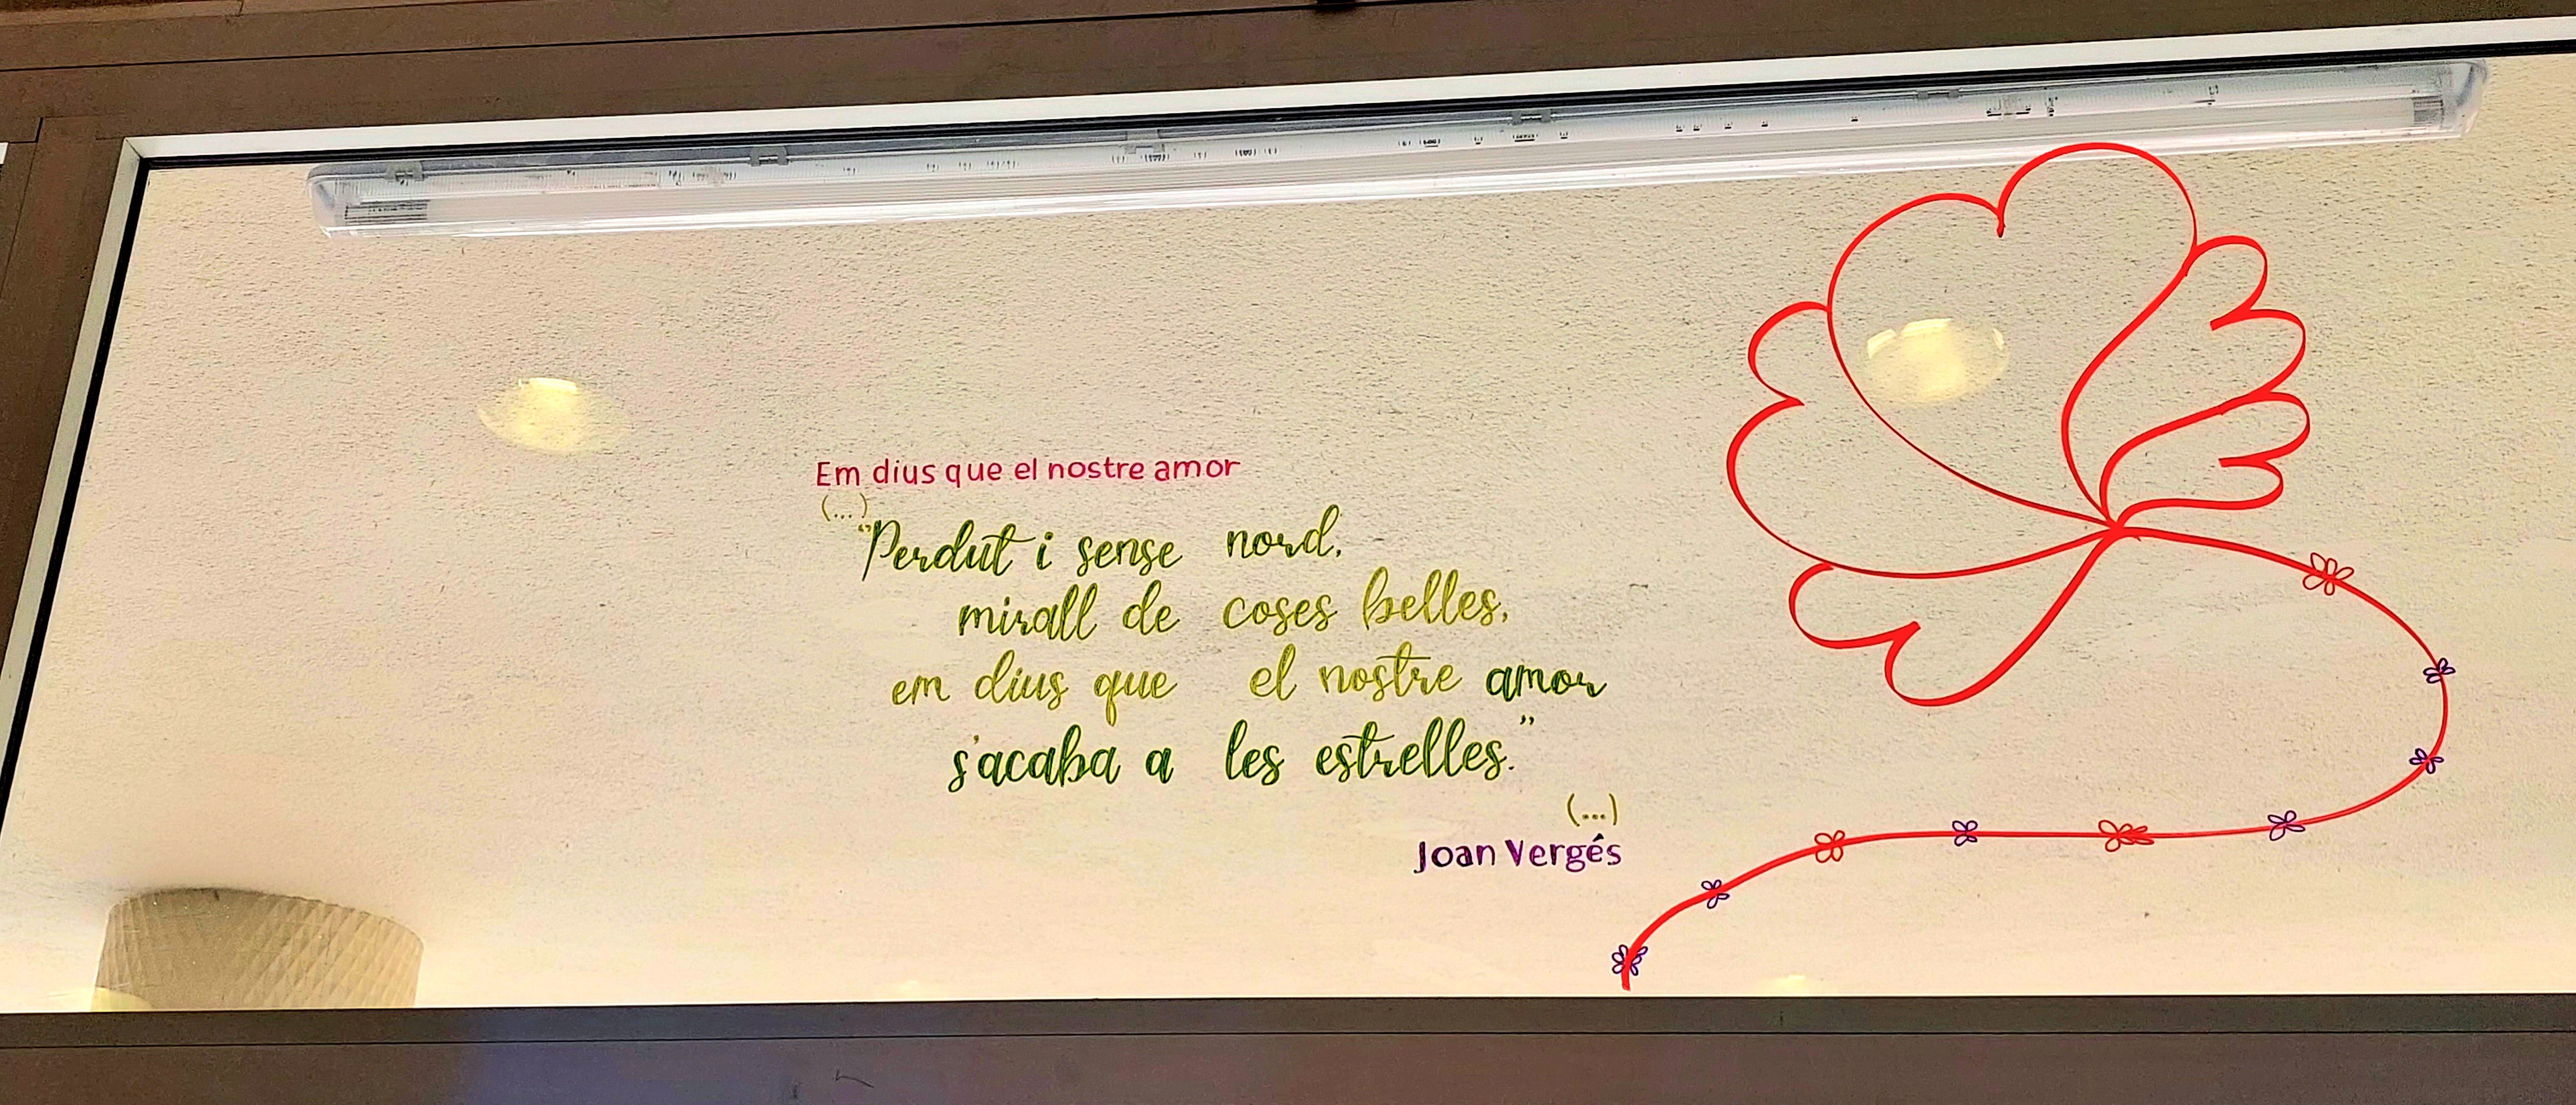 Em dius que el nostre amor
(...)
"Perdut i sense nord,
mirall de coses belles,
em dius que el nostre amor
s'acaba a les estrelles."
(...)
Joan Vergés